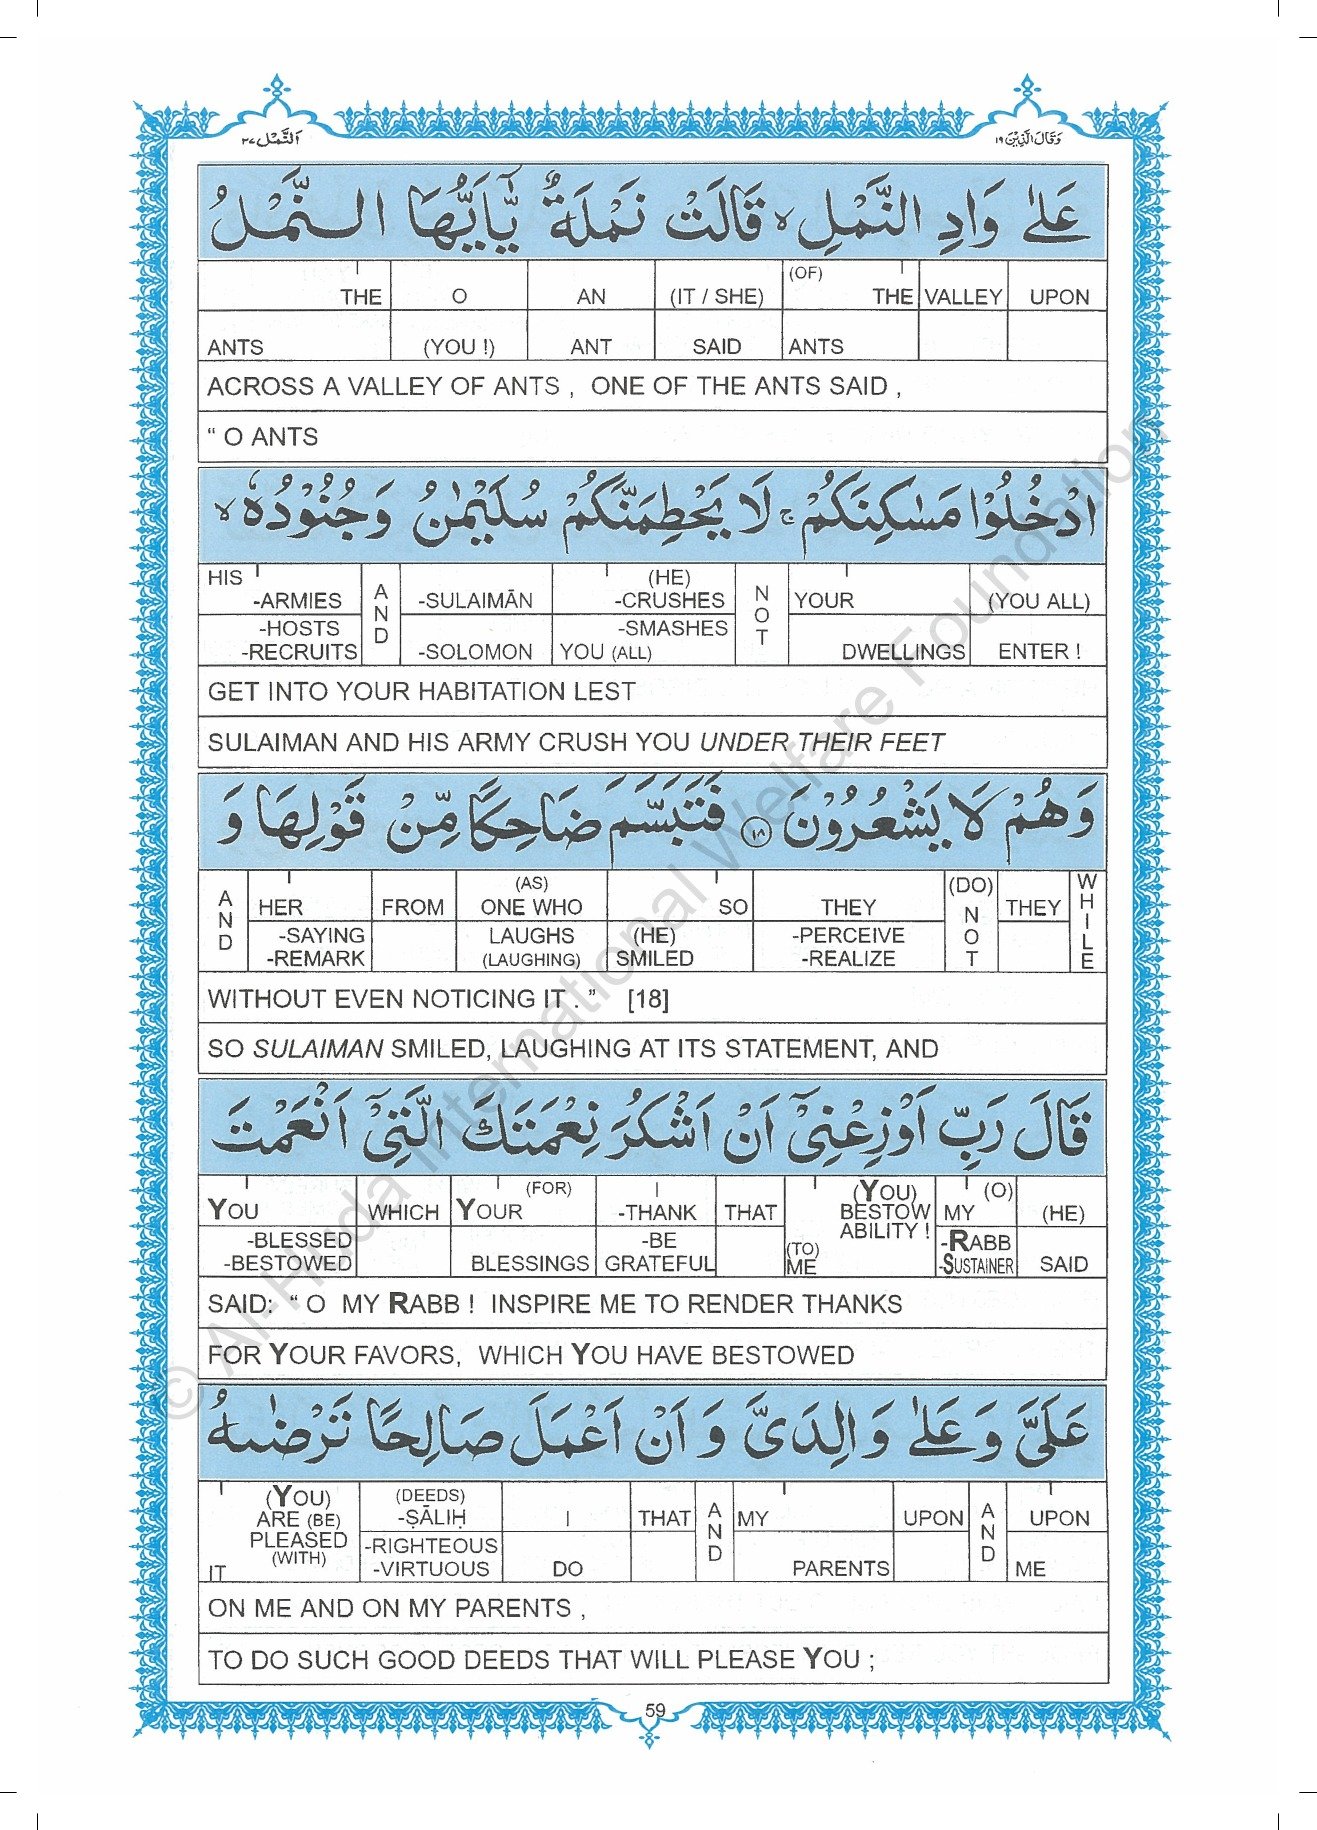 وَقَالَ الَّذِيْنَ ١٩
اَلنَّمْل ٢٧
عَلٰى وَادِ النَّمْلِ ۙ قَالَتْ نَمْلَةٌ يّٰۤاَيُّهَا النَّمْلُ
THE O AN (IT / SHE) (OF) THE VALLEY UPON
ANTS (YOU !) ANT SAID ANTS
ACROSS A VALLEY OF ANTS , ONE OF THE ANTS SAID ,
“ O ANTS
ادْخُلُوْا مَسٰكِنَكُمْ ۚ لَا يَحْطِمَنَّكُمْ سُلَيْمٰنُ وَجُنُوْدُهٗ ۙ
HIS -ARMIES AND -SULAIMĀN (HE) -CRUSHES NOT YOUR (YOU ALL)
-HOSTS -RECRUITS -SOLOMON -SMASHES YOU (ALL) DWELLINGS ENTER !
GET INTO YOUR HABITATION LEST
SULAIMAN AND HIS ARMY CRUSH YOU UNDER THEIR FEET
وَهُمْ لَا يَشْعُرُوْنَ ١٨ فَتَبَسَّمَ ضَاحِكًا مِّنْ قَوْلِهَا وَ
AND HER FROM (AS) ONE WHO SO THEY (DO) NOT THEY WHILE
-SAYING -REMARK LAUGHS (LAUGHING) (HE) SMILED -PERCEIVE -REALIZE
WITHOUT EVEN NOTICING IT . ” [18]
SO SULAIMAN SMILED, LAUGHING AT ITS STATEMENT, AND
قَالَ رَبِّ اَوْزِعْنِيْۤ اَنْ اَشْكُرَ نِعْمَتَكَ الَّتِيْۤ اَنْعَمْتَ
YOU WHICH YOUR (FOR) -THANK THAT (YOU) BESTOW ABILITY ! MY (O) (HE)
-BLESSED -BESTOWED BLESSINGS -BE GRATEFUL (TO) ME -RABB -SUSTAINER SAID
SAID: “ O MY RABB ! INSPIRE ME TO RENDER THANKS
FOR YOUR FAVORS, WHICH YOU HAVE BESTOWED
عَلَيَّ وَعَلٰى وَالِدَيَّ وَاَنْ اَعْمَلَ صَالِحًا تَرْضٰىهُ
(YOU) ARE (BE) PLEASED (WITH) (DEEDS) -ṢĀLIḤ I THAT AND MY UPON AND UPON
IT -RIGHTEOUS -VIRTUOUS DO PARENTS ME
ON ME AND ON MY PARENTS ,
TO DO SUCH GOOD DEEDS THAT WILL PLEASE YOU ;
59
© Al-Huda International Welfare Foundation